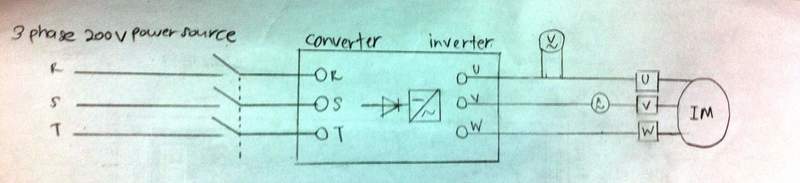 3 phase 200V power source
converter
inverter
V
R
R
U
U
S
S
V
A
V
IM
T
T
W
W